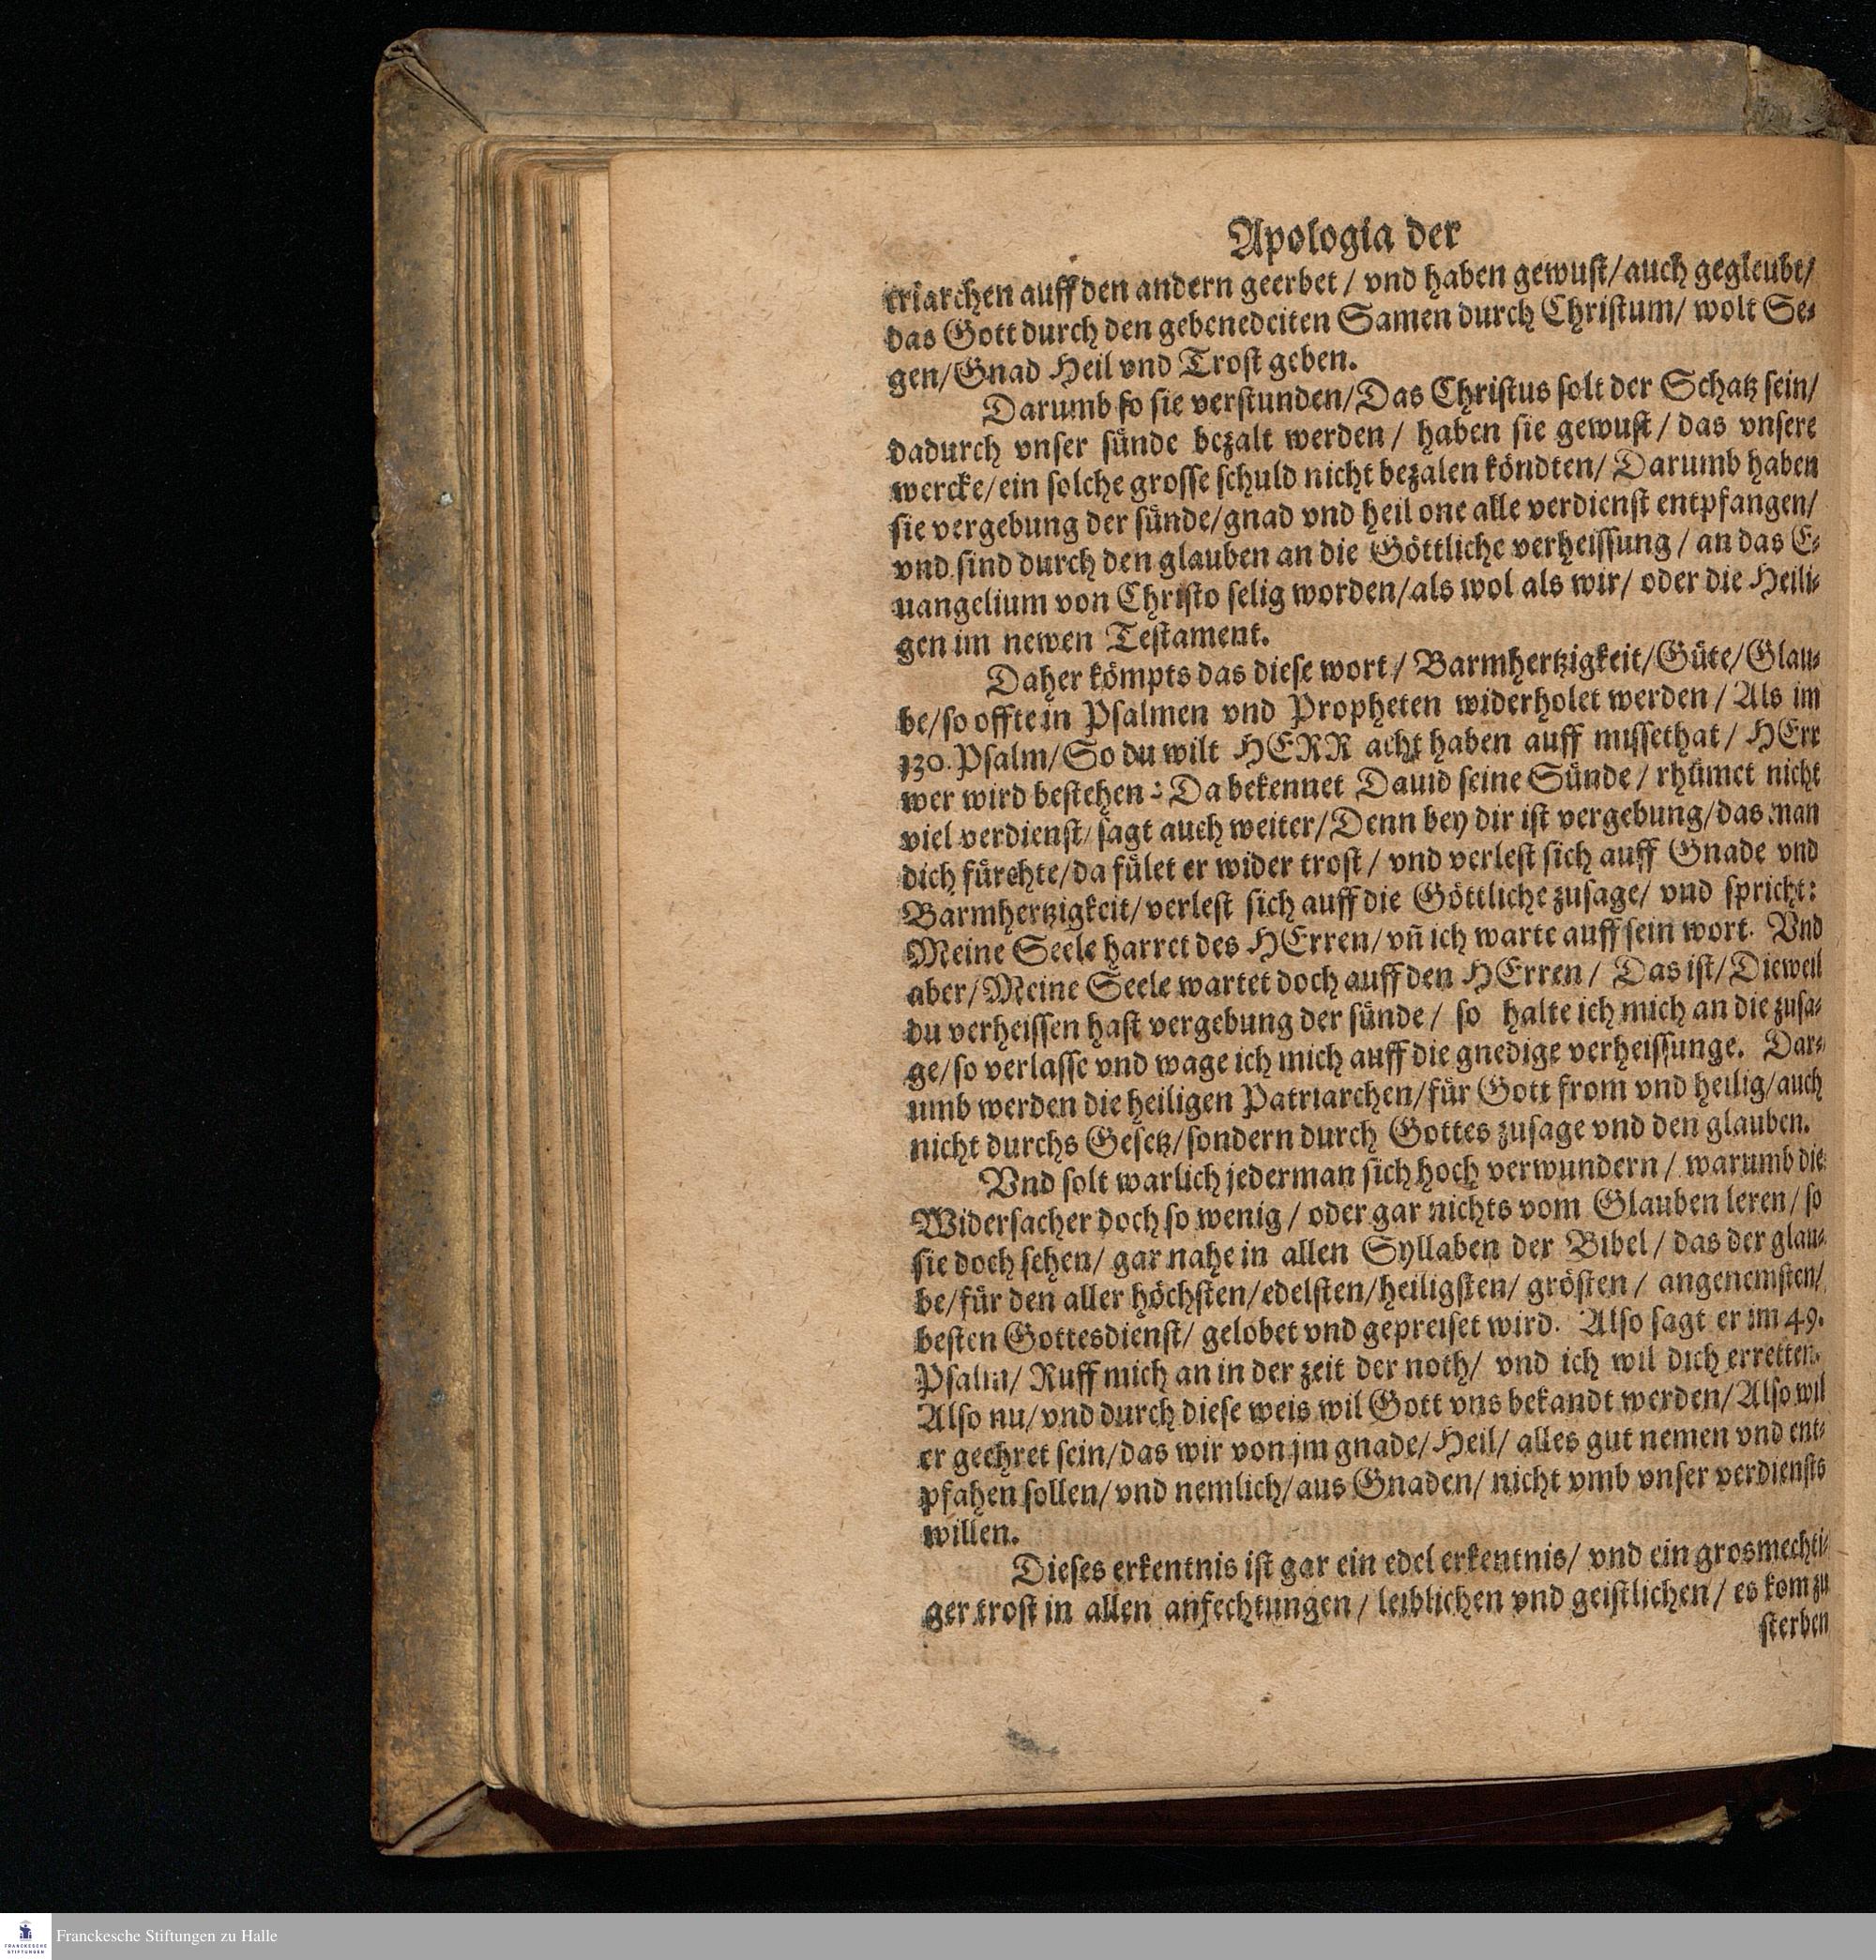 Apologia der
triarchen auff den andern geerbet / vnd haben gewust / auch gegleubt /
das Gott durch den gebenedeiten Samen durch Christum / wolt Se-
gen / Gnad Heil vnd Trost geben.
Darumb so sie verstunden / Das Christus solt der Schatz sein /
dadurch vnser sünde bezalt werden / haben sie gewust / das vnsere
wercke / ein solche grosse schuld nicht bezalen köndten / Darumb haben
sie vergebung der sünde / gnad vnd heil one alle verdienst entpfangen /
vnd sind durch den glauben an die Göttliche verheissung / an das E-
uangelium von Christo selig worden / als wol als wir / oder die Heili-
gen im newen Testament.
Daher kömpts das diese wort / Barmhertzigkeit / Güte / Glau-
be / so offte in Psalmen vnd Propheten widerholet werden / Als im
130. Psalm / So du wilt HERR acht haben auff missethat / HErr
wer wird bestehen? Da bekennet Dauid seine Sünde / rhümet nicht
viel verdienst / sagt auch weiter / Denn bey dir ist vergebung / das man
dich fürchte / da fület er wider trost / vnd verlest sich auff Gnade vnd
Barmhertzigkeit / verlest sich auff die Göttliche zusage / vnd spricht:
Meine Seele harret des HErren / vñ ich warte auff sein wort. Vnd
aber / Meine Seele wartet doch auff den HErren / Das ist / Dieweil
du verheissen hast vergebung der sünde / so halte ich mich an die zusa-
ge / so verlasse vnd wage ich mich auff die gnedige verheissunge. Dar-
umb werden die heiligen Patriarchen / für Gott from vnd heilig / auch
nicht durchs Gesetz / sondern durch Gottes zusage vnd den glauben.
Vnd solt warlich jederman sich hoch verwundern / warumb die
Widersacher doch so wenig / oder gar nichts vom Glauben leren / so
sie doch sehen / gar nahe in allen Syllaben der Bibel / das der glau-
be / für den aller höchsten / edelsten / heiligsten / grösten / angenemsten /
besten Gottesdienst / gelobet vnd gepreiset wird. Also sagt er im 49.
Psalm / Ruff mich an in der zeit der noth / vnd ich wil dich erretten.
Also nu / vnd durch diese weis wil Gott vns bekandt werden / Also wil
er geehret sein / das wir von jm gnade / Heil / alles gut nemen vnd ent-
pfahen sollen / vnd nemlich / aus Gnaden / nicht vmb vnser verdiensts
willen.
Dieses erkentnis ist gar ein edel erkentnis / vnd ein grosmechti-
ger trost in allen anfechtungen / leiblichen vnd geistlichen / es kom zu
sterben
FRANCKESCHE STIFTUNGEN
Franckesche Stiftungen zu Halle